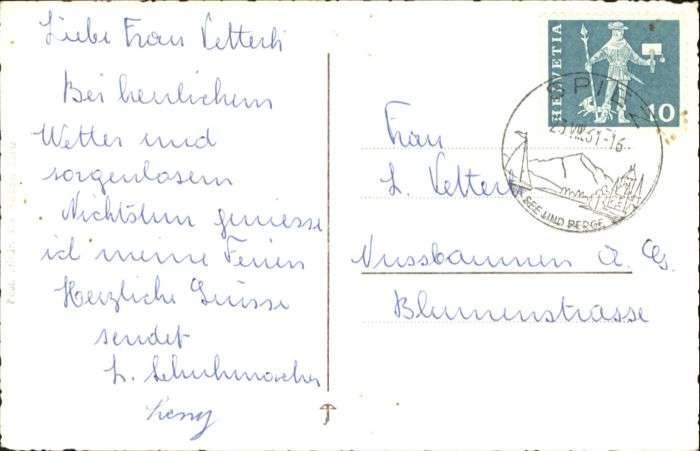 Liebe Frau Vetterli
Bei herrlichem
Wetter und
sorgenlosem
Nichtstun geniesse
ich meine Ferien
Herzliche Grüsse
sendet
L. Schuhmacher
HELVETIA
10
SPIEZ
23.VIII.61-16
SEE UND BERGE
Frau
L. Vetterli
Nussbaumen A. G.
Blumenstrasse